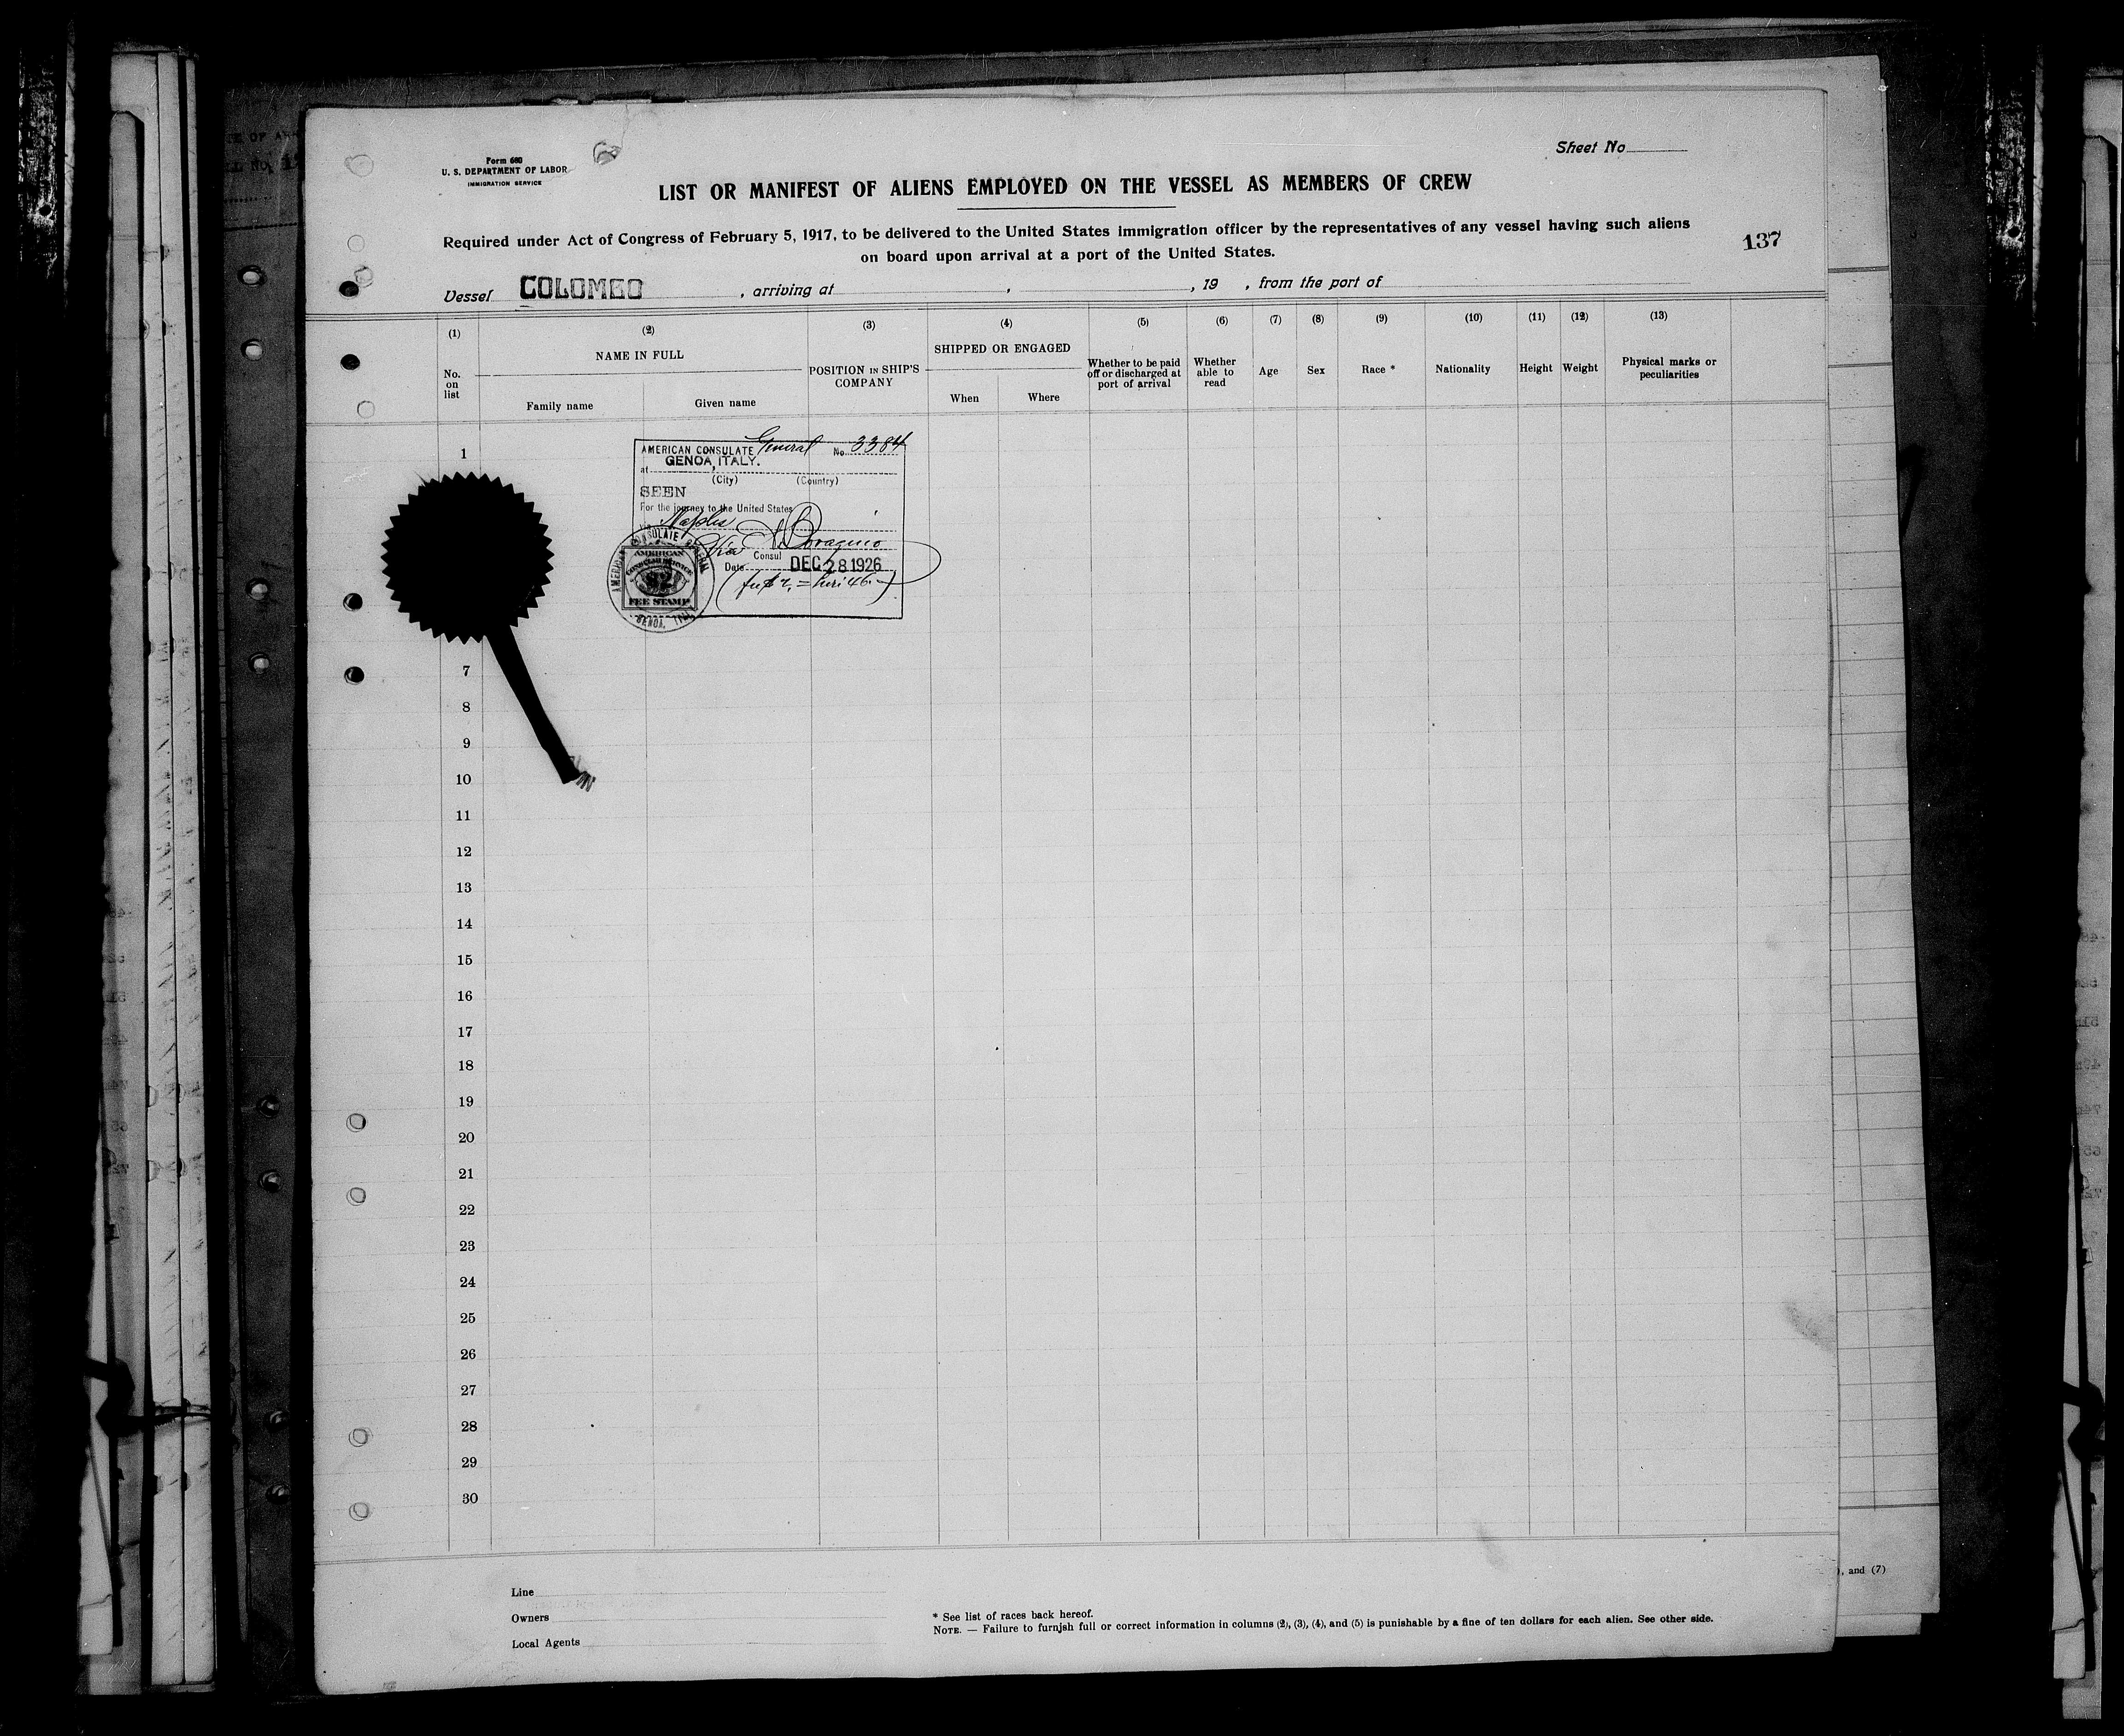 Form 660
U. S. DEPARTMENT OF LABOR
IMMIGRATION SERVICE
Sheet No
LIST OR MANIFEST OF ALIENS EMPLOYED ON THE VESSEL AS MEMBERS OF CREW
Required under Act of Congress of February 5, 1917, to be delivered to the United States immigration officer by the representatives of any vessel having such aliens
on board upon arrival at a port of the United States.
137
Vessel COLOMBO , arriving at , , 19 , from the port of
(1) (2) (3) (4) (5) (6) (7) (8) (9) (10) (11) (12) (13)
No. on list
NAME IN FULL
Family name Given name
POSITION IN SHIP'S COMPANY
SHIPPED OR ENGAGED
When Where
Whether to be paid off or discharged at port of arrival
Whether able to read
Age
Sex
Race *
Nationality
Height
Weight
Physical marks or peculiarities
1
AMERICAN CONSULATE General No. 3384
at GENOA, ITALY.
(City) (Country)
SEEN
For the journey to the United States
via Naples
Vice Consul
Date DEC 28 1926
AMERICAN CONSULATE GENERAL
GENOA, ITALY
AMERICAN
CONSULAR SERVICE
$2
FEE STAMP
7
8
9
10
11
12
13
14
15
16
17
18
19
20
21
22
23
24
25
26
27
28
29
30
Line
Owners
Local Agents
* See list of races back hereof.
NOTE. — Failure to furnish full or correct information in columns (2), (3), (4), and (5) is punishable by a fine of ten dollars for each alien. See other side.
, and (7)